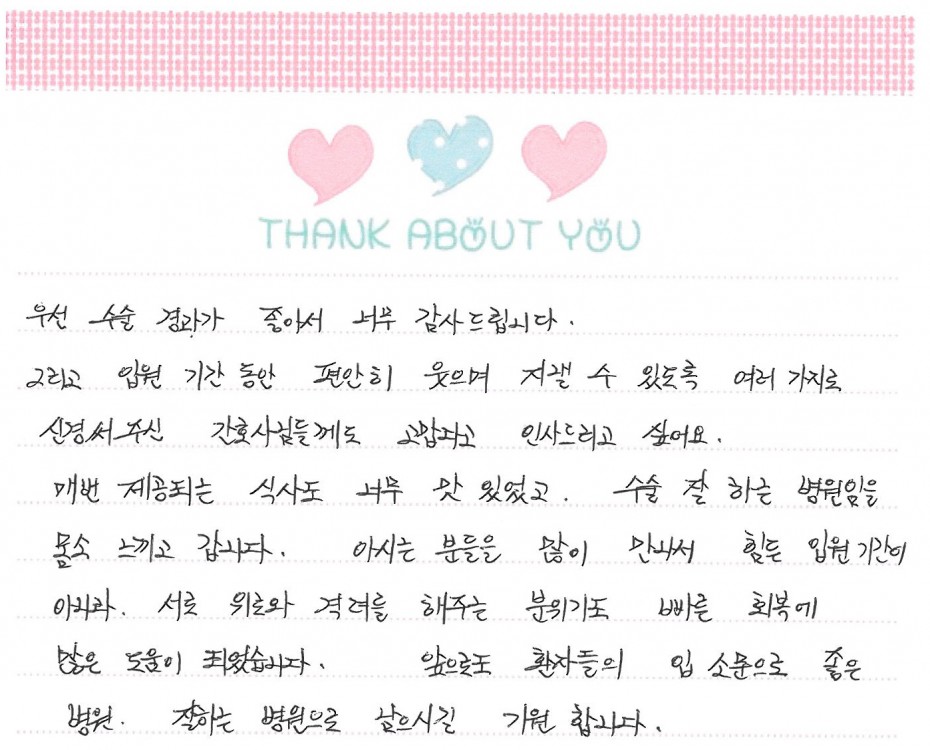 THANK ABOUT YOU
우선 수술 경과가 좋아서 너무 감사드립니다.
그리고 입원 기간 동안 편안히 웃으며 지낼 수 있도록 여러 가지로
신경써주신 간호사님들께도 고맙다고 인사드리고 싶어요.
매번 제공되는 식사도 너무 맛있었고. 수술 잘 하는 병원임을
몸소 느끼고 갑니다. 아시는 분들을 많이 만나서 힘든 입원기간이
아니라. 서로 위로와 격려를 해주는 분위기도 빠른 회복에
많은 도움이 되었습니다. 앞으로도 환자들의 입 소문으로 좋은
병원. 잘하는 병원으로 남으시길 기원 합니다.